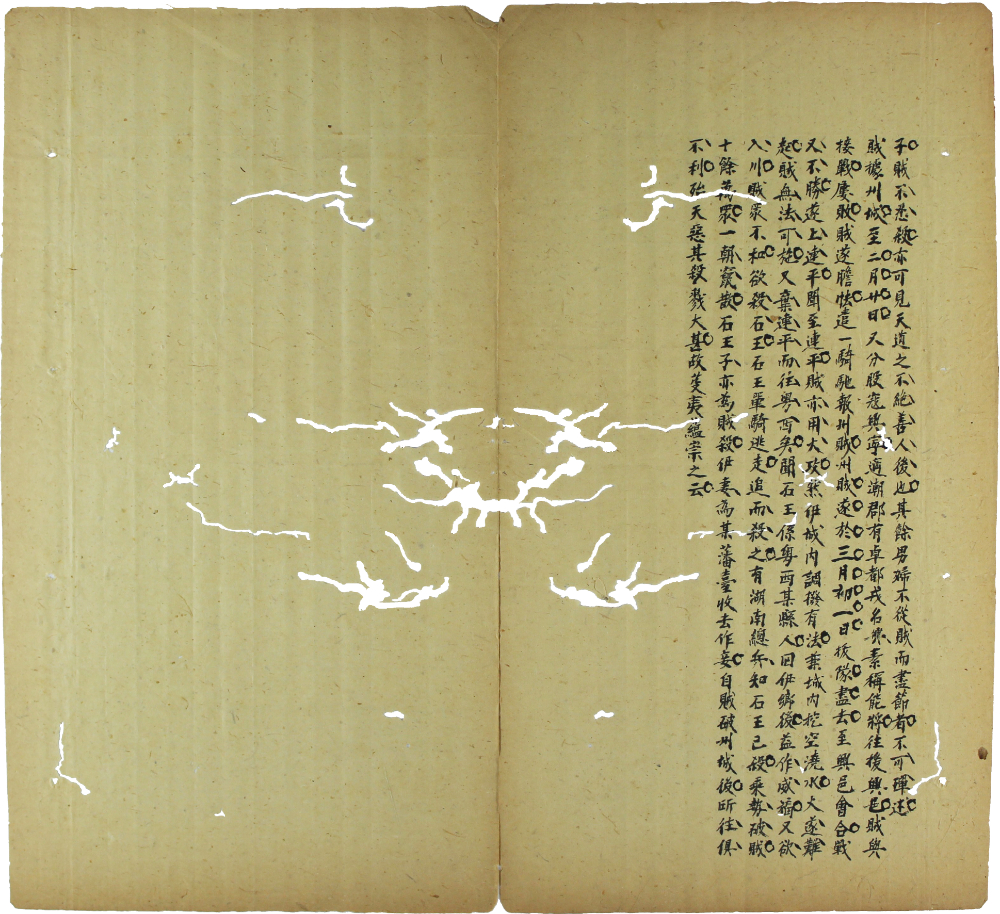 子賊不忍殺亦可見天道之不絕善人後也其餘男婦不從賊而盡節者不可殫述
賊據州城至二月廿日又分股寇興寧適潮郡有卓都戎名興素稱能將往援興邑賊與
接戰屢敗賊遂膽怯遣一騎馳報州賊州賊遂於三月初一日拔隊盡去至興邑會合戰
又不勝遂上連平聞至連平賊亦用火攻然伊城內調撥有法葉城內挖空澆水火遂難
起賊無法可施又棄連平而往粵西矣聞石王係粵西某縣人回伊鄉後益作威福又欲
入川賊眾不和欲殺石王石王單騎逃走追而殺之有湖南總兵知石王已殺乘勢破賊
十餘萬眾一朝竄散石王子亦為賊殺伊妻為某藩臺收去作妾自賊破州城後所往俱
不利殆天惡其殺戮太甚故芟夷蘊崇之云